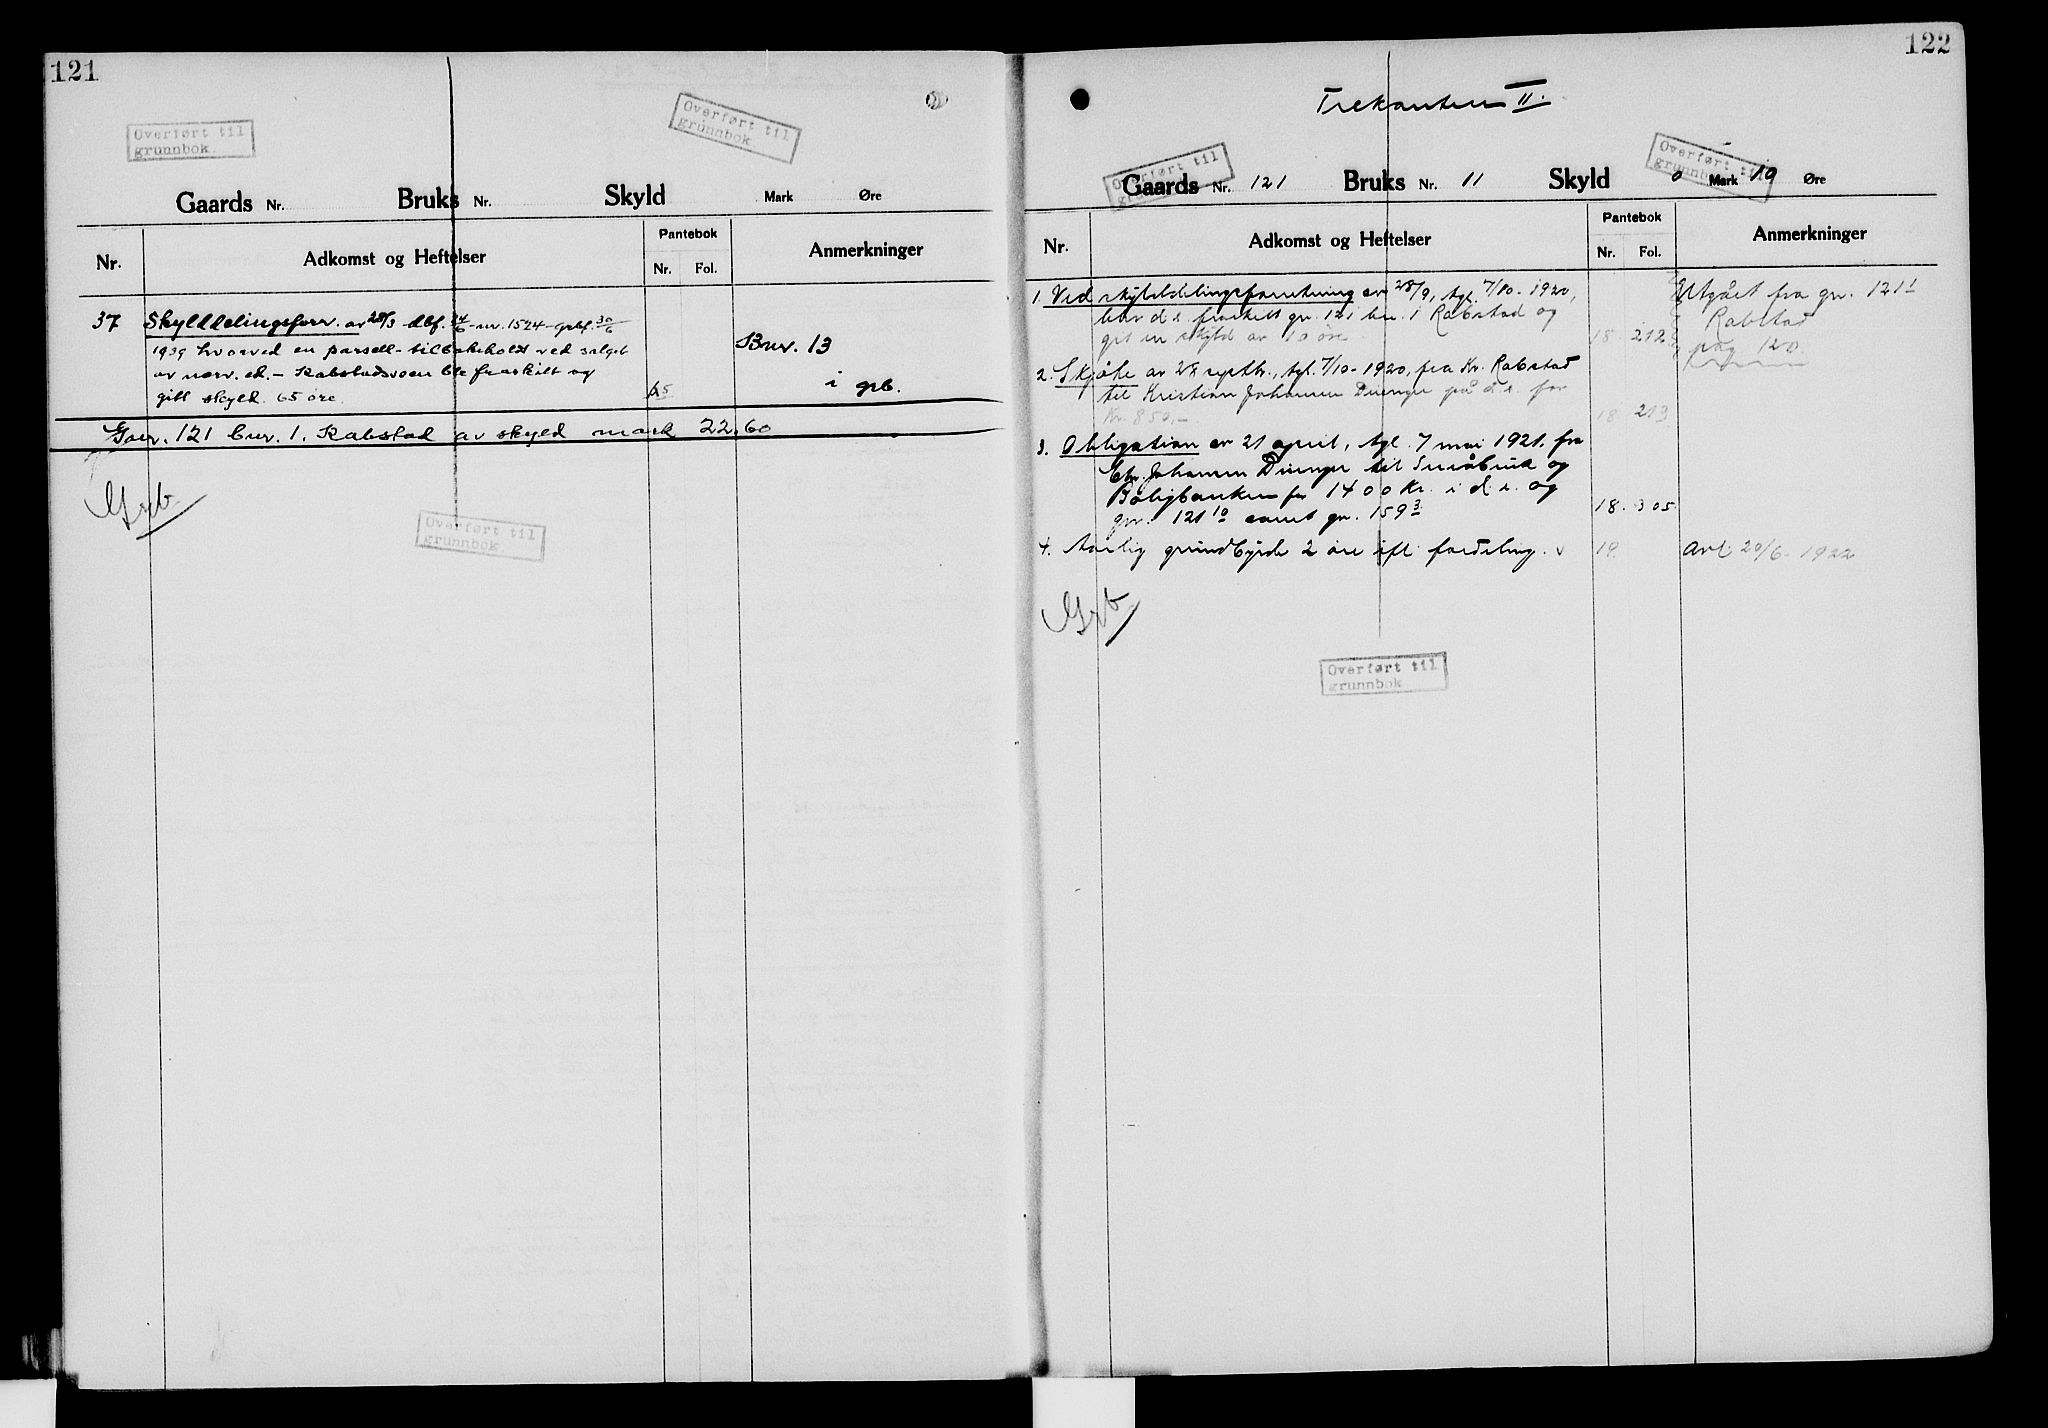 121
Overført til
grunnbok
Overført til
grunnbok
Gaards Nr. Bruks Nr. Skyld Mark Øre
Nr. Adkomst og Heftelser Pantebok Anmerkninger
Nr. Fol.
37 Skylddelingsforr. av 28/3 dbf. 24/6 - nr. 1524 - grbf. 30/6
1939 hvorved en parsell - tilbakeholdt ved salget
av nærv. ed. - Rabstadsvoen ble fraskilt og
gitt skyld 65 øre.
Bnr. 13
i grb.
Gnr. 121 bnr. 1. Rabstad av skyld mark 22.60
Grb
Overført til
grunnbok
122
Trekanten II.
Overført til
grunnbok
Overført til
grunnbok
Gaards Nr. 121 Bruks Nr. 11 Skyld 0 Mark 10 Øre
Nr. Adkomst og Heftelser Pantebok Anmerkninger
Nr. Fol.
1. Ved skylddelingsforretning av 28/9, tgl. 7/10 - 1920,
blev d. e. fraskilt gn. 121 bn. 1 Rabstad og
git en skyld av 10 øre 18 212
Utgået fra gn. 121 1
Rabstad
pag 120.
2. Skjøte av 28 septbr., tgl. 7/10 - 1920, fra Kr. Rabstad
til Kristian Johansen Duenger på d. e. for
Kr. 850,- 18 213
3. Obligation av 21 april, tgl. 7 mai 1921. fra
Chr. Johansen Duenger til Småbruk og
Boligbanken for 1400 Kr. i d. e. og
gn. 121 10 samt gn. 159 3 18. 305
4. Aarlig grundbyrde 2 øre ifl. fordeling. 19 avl. 20/6 - 1922
Grb
Overført til
grunnbok